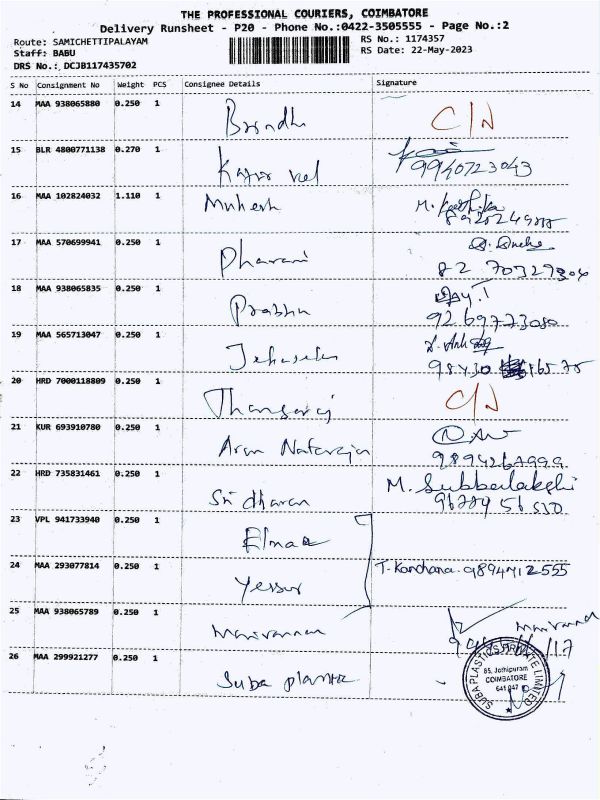 THE PROFESSIONAL COURIERS, COIMBATORE
Delivery Runsheet - P20 - Phone No.:0422-3505555 - Page No.:2
Route: SAMICHETTIPALAYAM RS No.: 1174357
Staff: BABU RS Date: 22-May-2023
DRS No.: DCJB117435702
S No Consignment No Weight PCS Consignee Details Signature
14 MAA 938065880 0.250 1 Brindha C/N
15 BLR 4800771138 0.270 1 vel 9940723043
16 MAA 102824032 1.110 1 Mukesh M. Karthika
17 MAA 570699941 0.250 1 Dharani
18 MAA 938065835 0.250 1 Prabhu
19 MAA 565713047 0.250 1
20 HRD 7000118809 0.250 1 Thangaraj C/N
21 KUR 693910780 0.250 1 Arun Nataraja
22 HRD 735831461 0.250 1 Sri dharan M. Subbulakshi
23 VPL 941733940 0.250 1
24 MAA 293077814 0.250 1 T. Kanchana. 9894712555
25 MAA 938065789 0.250 1 Manivannan
26 MAA 299921277 0.250 1 Suba
SUBA PLASTICS PRIVATE LIMITED
85, Jothipuram
COIMBATORE
641 047